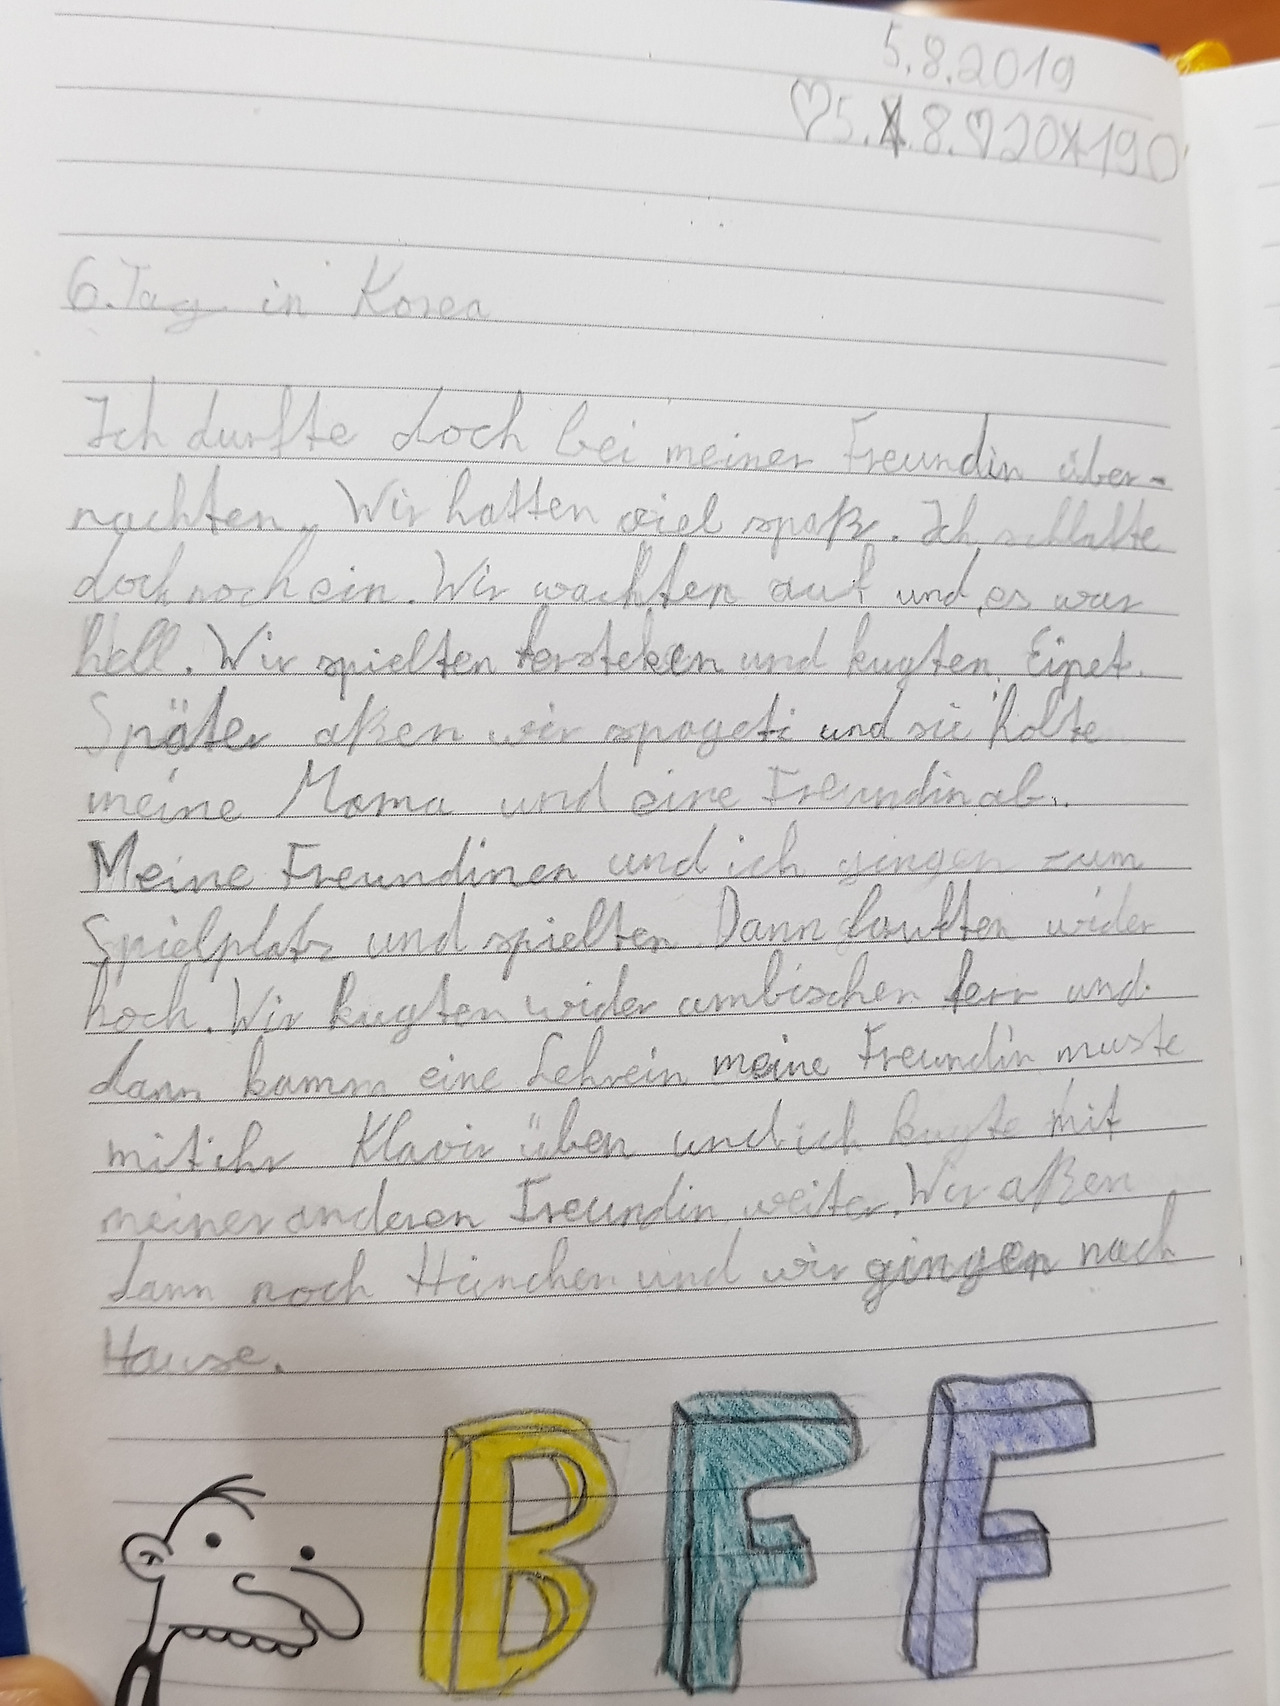 5.8.2019
♡5.☆.8.♡20☆190
6. Tag in Korea
Ich durfte doch bei meiner Freundin über-
nachten. Wir hatten viel spaß. Ich schlafte
doch noch ein. Wir wachten auf und es war
hell. Wir spielten fersteken und kugten
Später aßen wir spageti und sie holte
meine Mama und eine Freundin ab.
Meine Freundinen und ich gingen zum
Spielplatz und spielten Dann lauften wider
hoch. Wir kugten wider ambischen fern und
dann kamm eine Lehrein meine Freundin muste
mit ihr Klavir üben und ich kugte mit
meiner anderen Freundin weiter. Wir aßen
dann noch Hünchen und wir gingen nach
Hause.
BFF